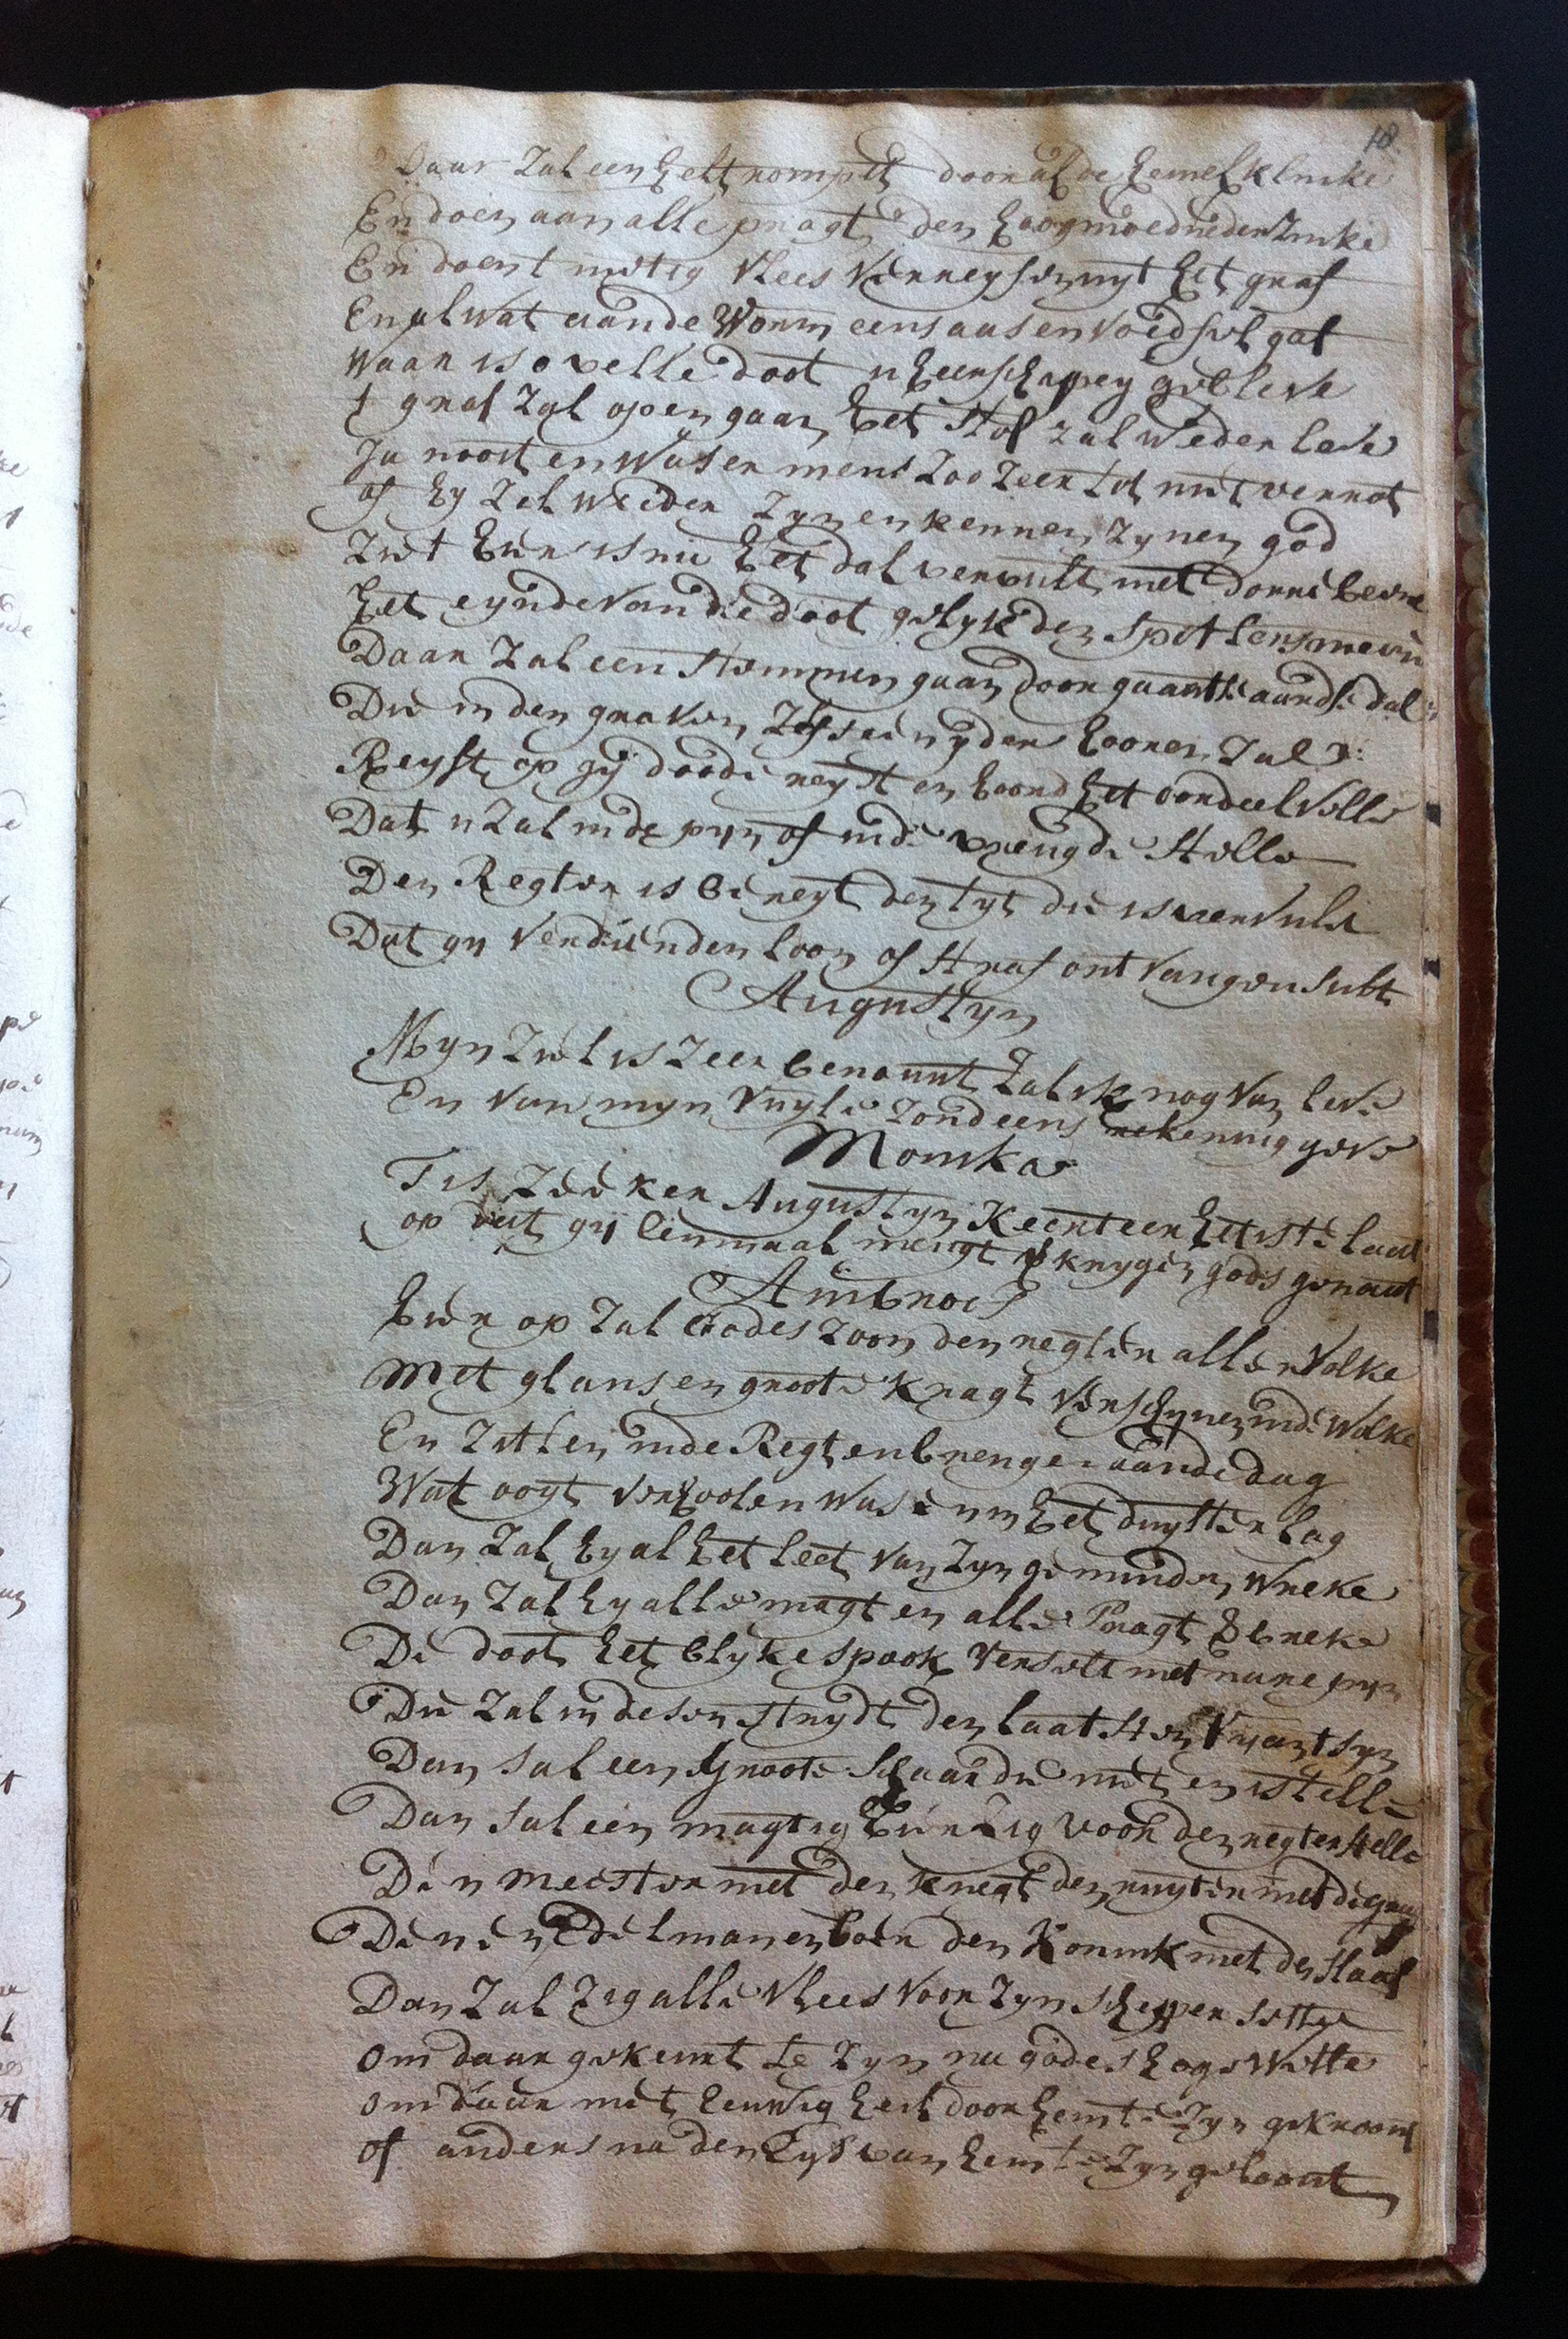 18
Daar Zal een heltrompet door al de hemel klinke
En doen aan alle pragt den hoogmoed neder Zinke
En doen t nietig vlees verreysen uyt het graf
En al wat aan de Worm eens aas en voedsel gaf
Waar is o velle doot u heerschappey gebleve
t graf Zal open gaan het stof zal weder leve
Ja noost en Was er mens Zoo Zeer tot niet verrot
of hy Zal weder Zyn en kennen Zynen god
Ziet hier is nu het dal vervult met dorre beene
Het eynde van die doot gelyk den spot
Daar Zal een stemmen gaan door gants aards dal
Die in den graven Zelfs een yder hooren Zal
Reyst op gij doode reyst en hoord het oordeel velle
Dat u Zal in de pyn of in de vreugde stelle
Den Regter is bereyt den tyt die is vervult
Dat gy verdienden loon of straf ontvangen sult
Augustyn
Myn Ziel is Zeer benaunt Zal ik nog van leve
En van myn vuyle Zond eens rekening geve
Monika
Tis Zeeker Augustyn Keert eer het is te laat
op dat gij eenmaal meugt krygen gods genaat
Ambroos
hier op Zal Godes Zoon den regter aller Volke
Met glans en groote kragt verschynen in de Wolke
En Zitten in de Regt en brengen aan de dag
Wat ooyt verhoolen was en in het duyster lag
Dan Zal hy al het leet van Zyn geminden wreke
Dan Zal hy alle magt en alle Pragt breke
De doot het blyke spook verselt met nare pyn
Die Zal in desen strydt den laatsten vyant syn
Dan sal een groote schaar die niet en is te telle
Dan sal een magtig heir Zig voor den regter stelle
Den meester met den knegt den ruyter met de graaf
Den en Edelman en boer den Konink met de slaaf
Dan Zal Zig alle vlees voor Zyn schepper sette
om daar gekeurt te Zyn na godes hoge Wette
om daar met eeuwig heil door hem te Zyn gekroont
of anders na den Eys van hem te Zyn geloont